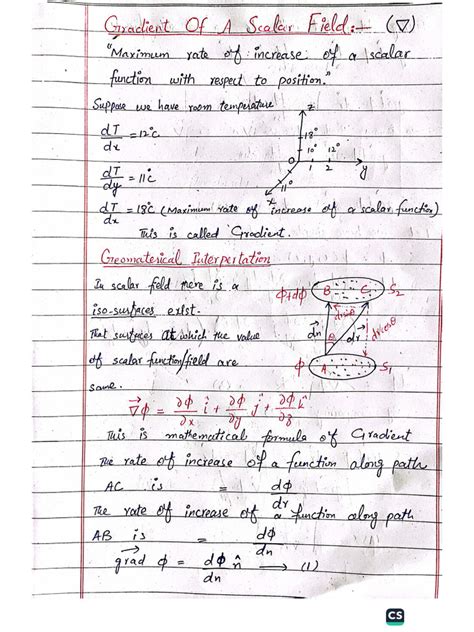 Gradient Of A Scalar Field:- (▽)
"Maximum rate of increase of a scalar
function with respect to position."
Suppose we have room temperature
dT/dx = 12°C
dT/dy = 11°C
dT/dx = 18°C (Maximum rate of increase of a scalar function)
This is called Gradient.
z
18°
10° 12°
O 1 2 y
11°
x
Geomaterical Interpertation
In scalar field there is a
iso-surfaces exist.
That surfaces at which the value
of scalar function/field are
same.
ϕ+dϕ B C S₂
dn θ dr drcosθ
ϕ A S₁
∇ϕ = ∂ϕ/∂x î + ∂ϕ/∂y ĵ + ∂ϕ/∂z k̂
This is mathematical formula of Gradient
The rate of increase of a function along path
AC is = dϕ/dr
The rate of increase of a function along path
AB is = dϕ/dn
grad ϕ = dϕ/dn n̂ → (1)
CS